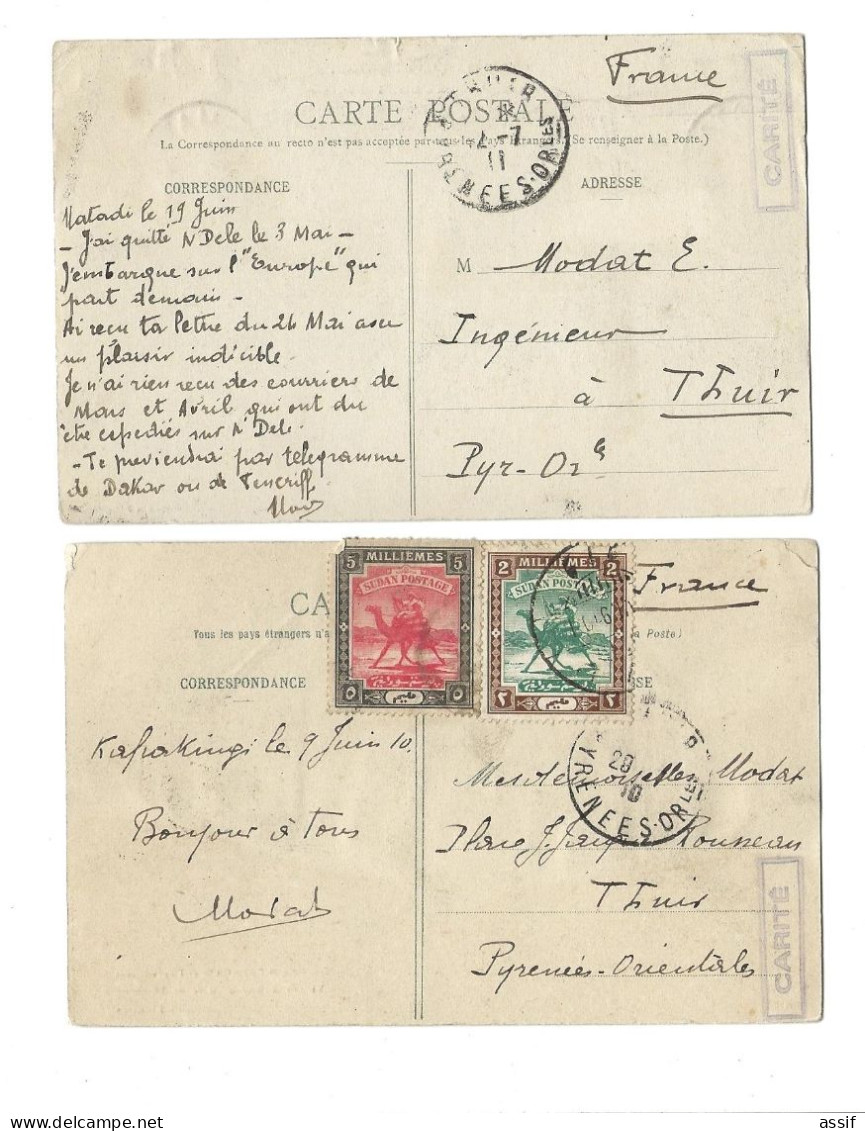 France
CARITÉ
THUIR
7
11
PYRENEES-ORLES
CARTE POSTALE
La Correspondance au recto n'est pas acceptée par tous les Pays Étrangers (Se renseigner à la Poste.)
CORRESPONDANCE
ADRESSE
Matadi le 19 Juin
- J'ai quitté N'Dele le 3 Mai -
J'embarque sur l'"Europe" qui
part demain -
Ai reçu ta lettre du 26 Mai avec
un plaisir indicible.
Je n'ai rien reçu des courriers de
Mars et Avril qui ont du
être expediés sur N'Dele.
- Te previendrai par télégramme
de Dakar ou de Teneriff.
M Modat E.
Ingénieur
à Thuir
Pyr-Ores
5 MILLIÈMES 5
SUDAN POSTAGE
٥ مليم ٥
2 MILLIÈMES 2
SUDAN POSTAGE
٢ مليم ٢
France
CA
Tous les pays étrangers n'a
la Poste.)
CORRESPONDANCE
SSE
20
10
PYRENEES-ORLES
Kafiakingi le 9 Juin 10.
Bonjour à tous
Modat
Mesdemoiselles Modat
Place J. Jacques Rousseau
Thuir
Pyrenées-Orientales
CARITÉ
assif